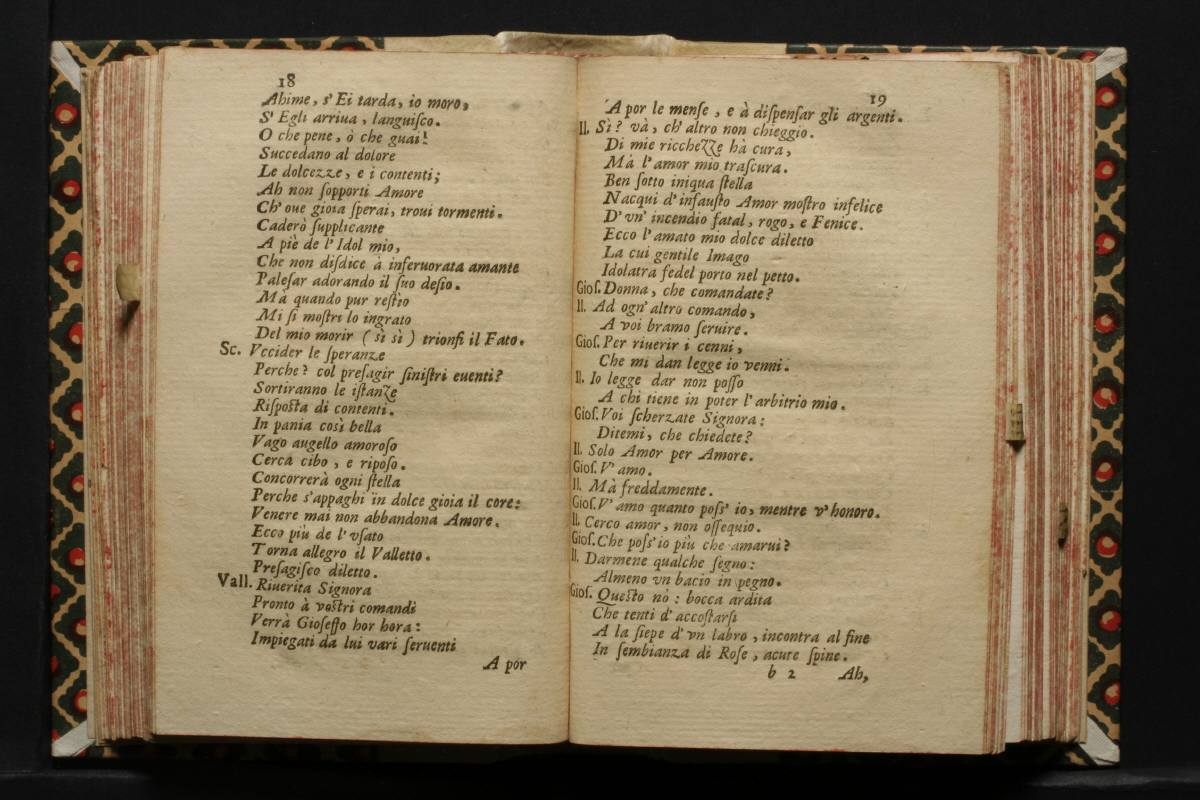 18
Ahime, s' Ei tarda, io moro,
S' Egli arriua, languiſco.
O che pene, ò che guai!
Succedano al dolore
Le dolcezze, e i contenti;
Ah non ſopporti Amore
Ch' oue gioia ſperai, troui tormenti.
Caderò ſupplicante
A piè de l' Idol mio,
Che non diſdice à inferuorata amante
Paleſar adorando il ſuo deſio.
Mà quando pur reſtio
Mi ſi moſtri lo ingrato
Del mio morir ( sì sì ) trionfi il Fato.
Sc. Vccider le ſperanze
Perche? col preſagir ſiniſtri euenti?
Sortiranno le iſtanze
Riſpoſta di contenti.
In pania così bella
Vago augello amoroſo
Cerca cibo, e ripoſo.
Concorrerà ogni ſtella
Perche s'appaghi in dolce gioia il core:
Venere mai non abbandona Amore.
Ecco più de l' vſato
Torna allegro il Valletto.
Preſagiſco diletto.
Vall. Riuerita Signora
Pronto à voſtri comandi
Verrà Gioſeffo hor hora:
Impiegati da lui vari ſeruenti
A por
19
A por le menſe, e à diſpenſar gli argenti.
Il. Sì? và, ch' altro non chieggio.
Di mie ricchezze hà cura,
Mà l' amor mio traſcura.
Ben ſotto iniqua ſtella
Nacqui d' infauſto Amor moſtro infelice
D' vn' incendio fatal, rogo, e Fenice.
Ecco l' amato mio dolce diletto
La cui gentile Imago
Idolatra fedel porto nel petto.
Gioſ. Donna, che comandate?
Il. Ad ogn' altro comando,
A voi bramo ſeruire.
Gioſ. Per riuerir i cenni,
Che mi dan legge io venni.
Il. Io legge dar non poſſo
A chi tiene in poter l' arbitrio mio.
Gioſ. Voi ſcherzate Signora:
Ditemi, che chiedete?
Il. Solo Amor per Amore.
Gioſ. V' amo.
Il. Mà freddamente.
Gioſ. V' amo quanto poſs' io, mentre v' honoro.
Il. Cerco amor, non oſſequio.
Gioſ. Che poſs' io più che amarui?
Il. Darmene qualche ſegno:
Almeno vn bacio in pegno.
Gioſ. Queſto nò: bocca ardita
Che tenti d' accoſtarſi
A la ſiepe d' vn labro, incontra al fine
In ſembianza di Roſe, acute ſpine.
b 2 Ah,